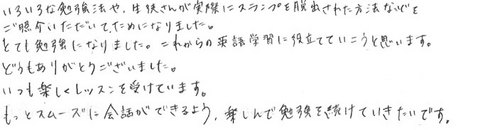 いろいろな勉強法や、生徒さんが実際にスランプを脱出された方法などを
ご紹介いただいて、ためになりました。
とても勉強になりました。これからの英語学習に役立てていこうと思います。
どうもありがとうございました。
いつも楽しくレッスンを受けています。
もっとスムーズに会話ができるよう、楽しんで勉強を続けていきたいです。